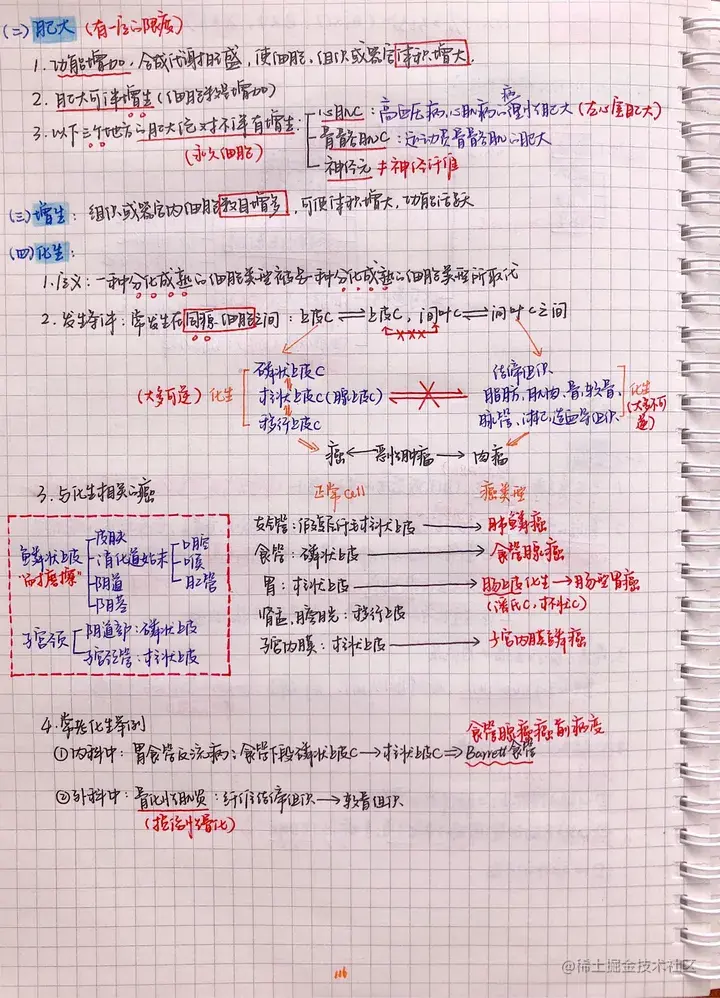 (二) 肥大 (有一定的限度)
1. 功能增加, 合成代谢旺盛, 使细胞、组织或器官体积增大.
2. 肥大可伴增生 (细胞数增加)
3. 以下三个地方的肥大绝对不伴有增生:
(永久细胞)
心肌C: 高血压病, 心肌病的病理性肥大 (左心室肥大)
骨骼肌C: 运动员骨骼肌的肥大
神经元 ≠ 神经纤维
(三) 增生: 组织或器官内细胞数目增多, 可使体积增大, 功能活跃
(四) 化生:
1. 定义: 一种分化成熟的细胞类型被另一种分化成熟的细胞类型所取代
2. 发生条件: 常发生在同源细胞之间: 上皮C ⇌ 上皮C, 间叶C ⇌ 间叶C之间
×××
(大多可逆) 化生
鳞状上皮C
柱状上皮C (腺上皮C)
移行上皮C
结缔组织
脂肪、肌肉、骨、软骨、
脉管、淋巴、造血等组织
化生
(大多不可逆)
癌 ← 恶性肿瘤 → 肉瘤
3. 与化生相关的癌
正常Cell 癌类型
鳞状上皮
"耐摩擦"
皮肤
消化道始末
口腔
咽
肛管
阴道
阴茎
子宫颈
阴道部: 鳞状上皮
子宫颈管: 柱状上皮
支气管: 假复层纤毛柱状上皮 → 肺鳞癌
食管: 鳞状上皮 → 食管腺癌
胃: 柱状上皮 → 肠上皮化生 → 肠型胃癌
(潘氏C, 杯状C)
肾盂、膀胱: 移行上皮
子宫内膜: 柱状上皮 → 子宫内膜鳞癌
4. 常考化生举例
食管腺癌癌前病变
①内科中: 胃食管反流病: 食管下段鳞状上皮C → 柱状上皮C ⇒ Barrett食管
②外科中: 骨化性肌炎: 纤维结缔组织 → 软骨组织
(损伤性骨化)
116
@稀土掘金技术社区